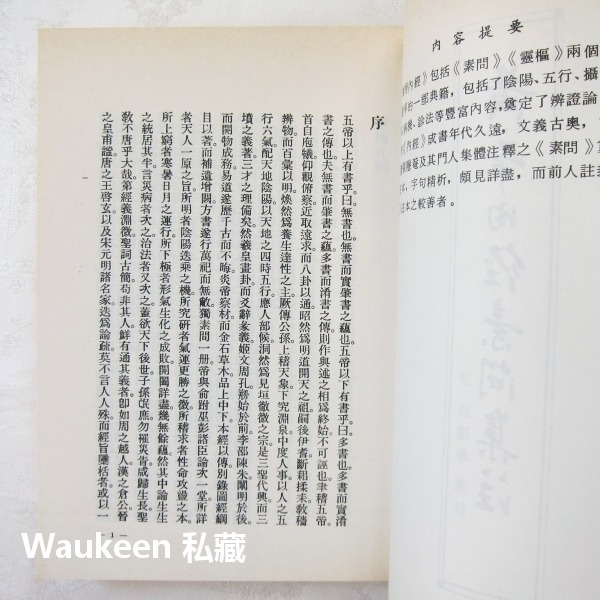 內容提要
內經》包括《素問》《靈樞》兩個
的一部典籍，包括了陰陽、五行、攝
、診法等豐富內容，奠定了辨證論
內經》成書年代久遠，文義古奧，
聰菴及其門人集體注釋之《素問》
，字句精析，頗見詳盡，而前人註
註本之較善者。
序
五帝以上有書乎。曰無書也。無書而實肇書之蘊也。五帝以下有書乎。曰多書也。多書而實淆
書之傳也。夫無書而肇書之蘊。多書而淆書之傳。則作與述之相爲終始。不可誣也。聿稽五帝。
首自庖犧。仰觀俯察。近取遠求。而八卦以通。昭然爲明道開天之祖。嗣後伊耆。斲耜揉耒。敎穡
辨物。而百彙以明。煥然爲養生達性之主。厥傳公孫。上稽天象。下究淵泉。中度人事。以人之五
行六氣。配天地陰陽。以天地之四時五行。應人部候。洞然爲見垣徹微之宗。是三聖代興。而三
墳之義著。三才之理備矣。然羲皇畫卦。而爻辭彖義。姬文周孔。勦始於前。李邵陳朱。闡明於後。
而開物成務。易道遂歷千古而不晦。炎帝察材。而金石草木。品上中下。本經以傳。別錄圖經綱
目以著。而補遺增闕。方書遂行萬祀而無斁。獨素問一册。帝與俞跗巫彭諸臣。論次一堂。所詳
者天人一原之旨。所明者陰陽迭乘之機。所究研者氣運更勝之微。所稽求者性命攻盪之本。
所上窮者寒暑日月之運行。所下極者形氣生化之成敗。開闔詳盡。幾無餘蘊。然其中論生生
之統居其半。言災病者次之。治法者又次之。蓋欲天下後世。子孫氓庶。勿罹災眚。咸歸生長。聖
敎不唐乎大哉。第經義淵微。聖詞古簡。苟非其人。鮮有通其義者。卽如周之越人。漢之倉公。晉
之皇甫謐。唐之王啓玄。以及宋元明諸名家。迭爲論疏。莫不言人人殊。而經旨隱括者。或以一
— 1 —
Waukeen 私藏